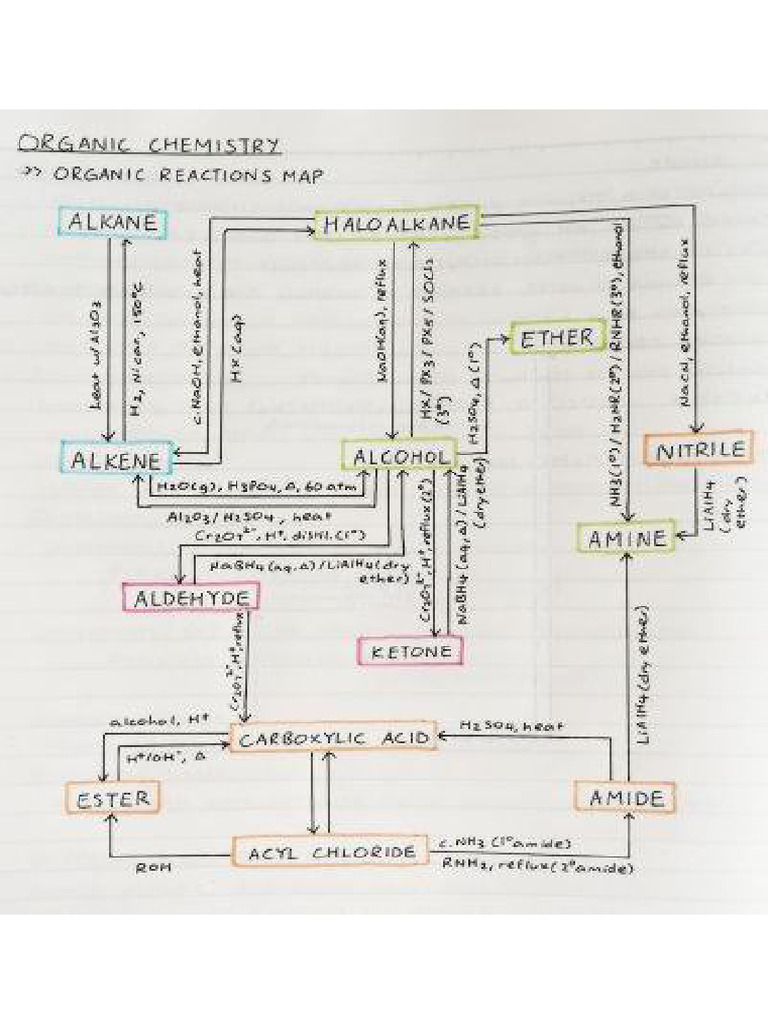 ORGANIC CHEMISTRY
↠ ORGANIC REACTIONS MAP
ALKANE
HALOALKANE
heat w/ Al2O3
H2, Ni cat, 150°C
c.NaOH, ethanol, heat
HX (aq)
NaOH(aq), reflux
HX / PX3 / PX5 / SOCl2
(3°)
H2SO4, Δ (1°)
ETHER
NH3(1°) / H2NR(2°) / RNHR(3°), ethanol
NaCN, ethanol, reflux
ALKENE
ALCOHOL
NITRILE
H2O(g), H3PO4, Δ, 60 atm
Al2O3 / H2SO4, heat
Cr2O7²⁻, H⁺, distil. (1°)
NaBH4 (aq, Δ) / LiAlH4 (dry
ether)
Cr2O7²⁻, H⁺, reflux (2°)
NaBH4 (aq, Δ) / LiAlH4
(dry ether)
LiAlH4
(dry
ether)
AMINE
ALDEHYDE
KETONE
Cr2O7²⁻, H⁺, reflux
LiAlH4 (dry ether)
alcohol, H⁺
CARBOXYLIC ACID
H2SO4, heat
H⁺/OH⁻, Δ
ESTER
AMIDE
ACYL CHLORIDE
c.NH3 (1° amide)
ROH
RNH2, reflux (2° amide)